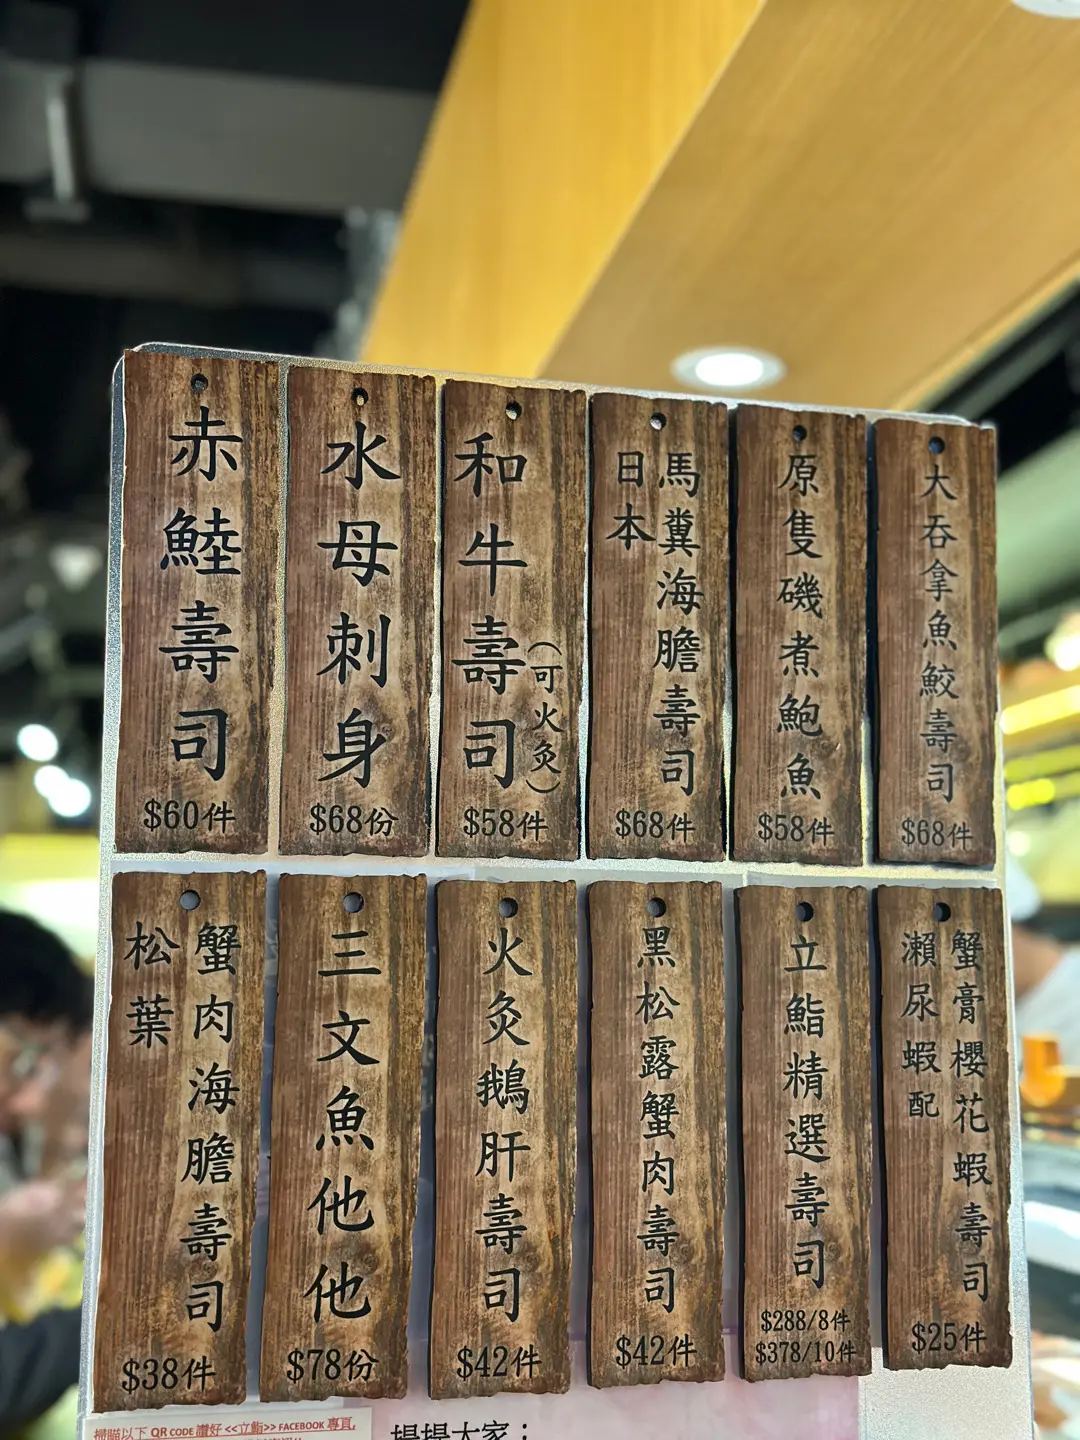 赤鯥壽司
$60件
水母刺身
$68份
和牛壽司
(可火灸)
$58件
日本
馬糞海膽壽司
$68件
原隻磯煮鮑魚
$58件
大吞拿魚鮫壽司
$68件
松葉
蟹肉海膽壽司
$38件
三文魚他他
$78份
火灸鵝肝壽司
$42件
黑松露蟹肉壽司
$42件
立鮨精選壽司
$288/8件
$378/10件
瀨尿蝦配
蟹膏櫻花蝦壽司
$25件
掃瞄以下 QR CODE 讚好 <<立鮨>> FACEBOOK 專頁,
提提大家：